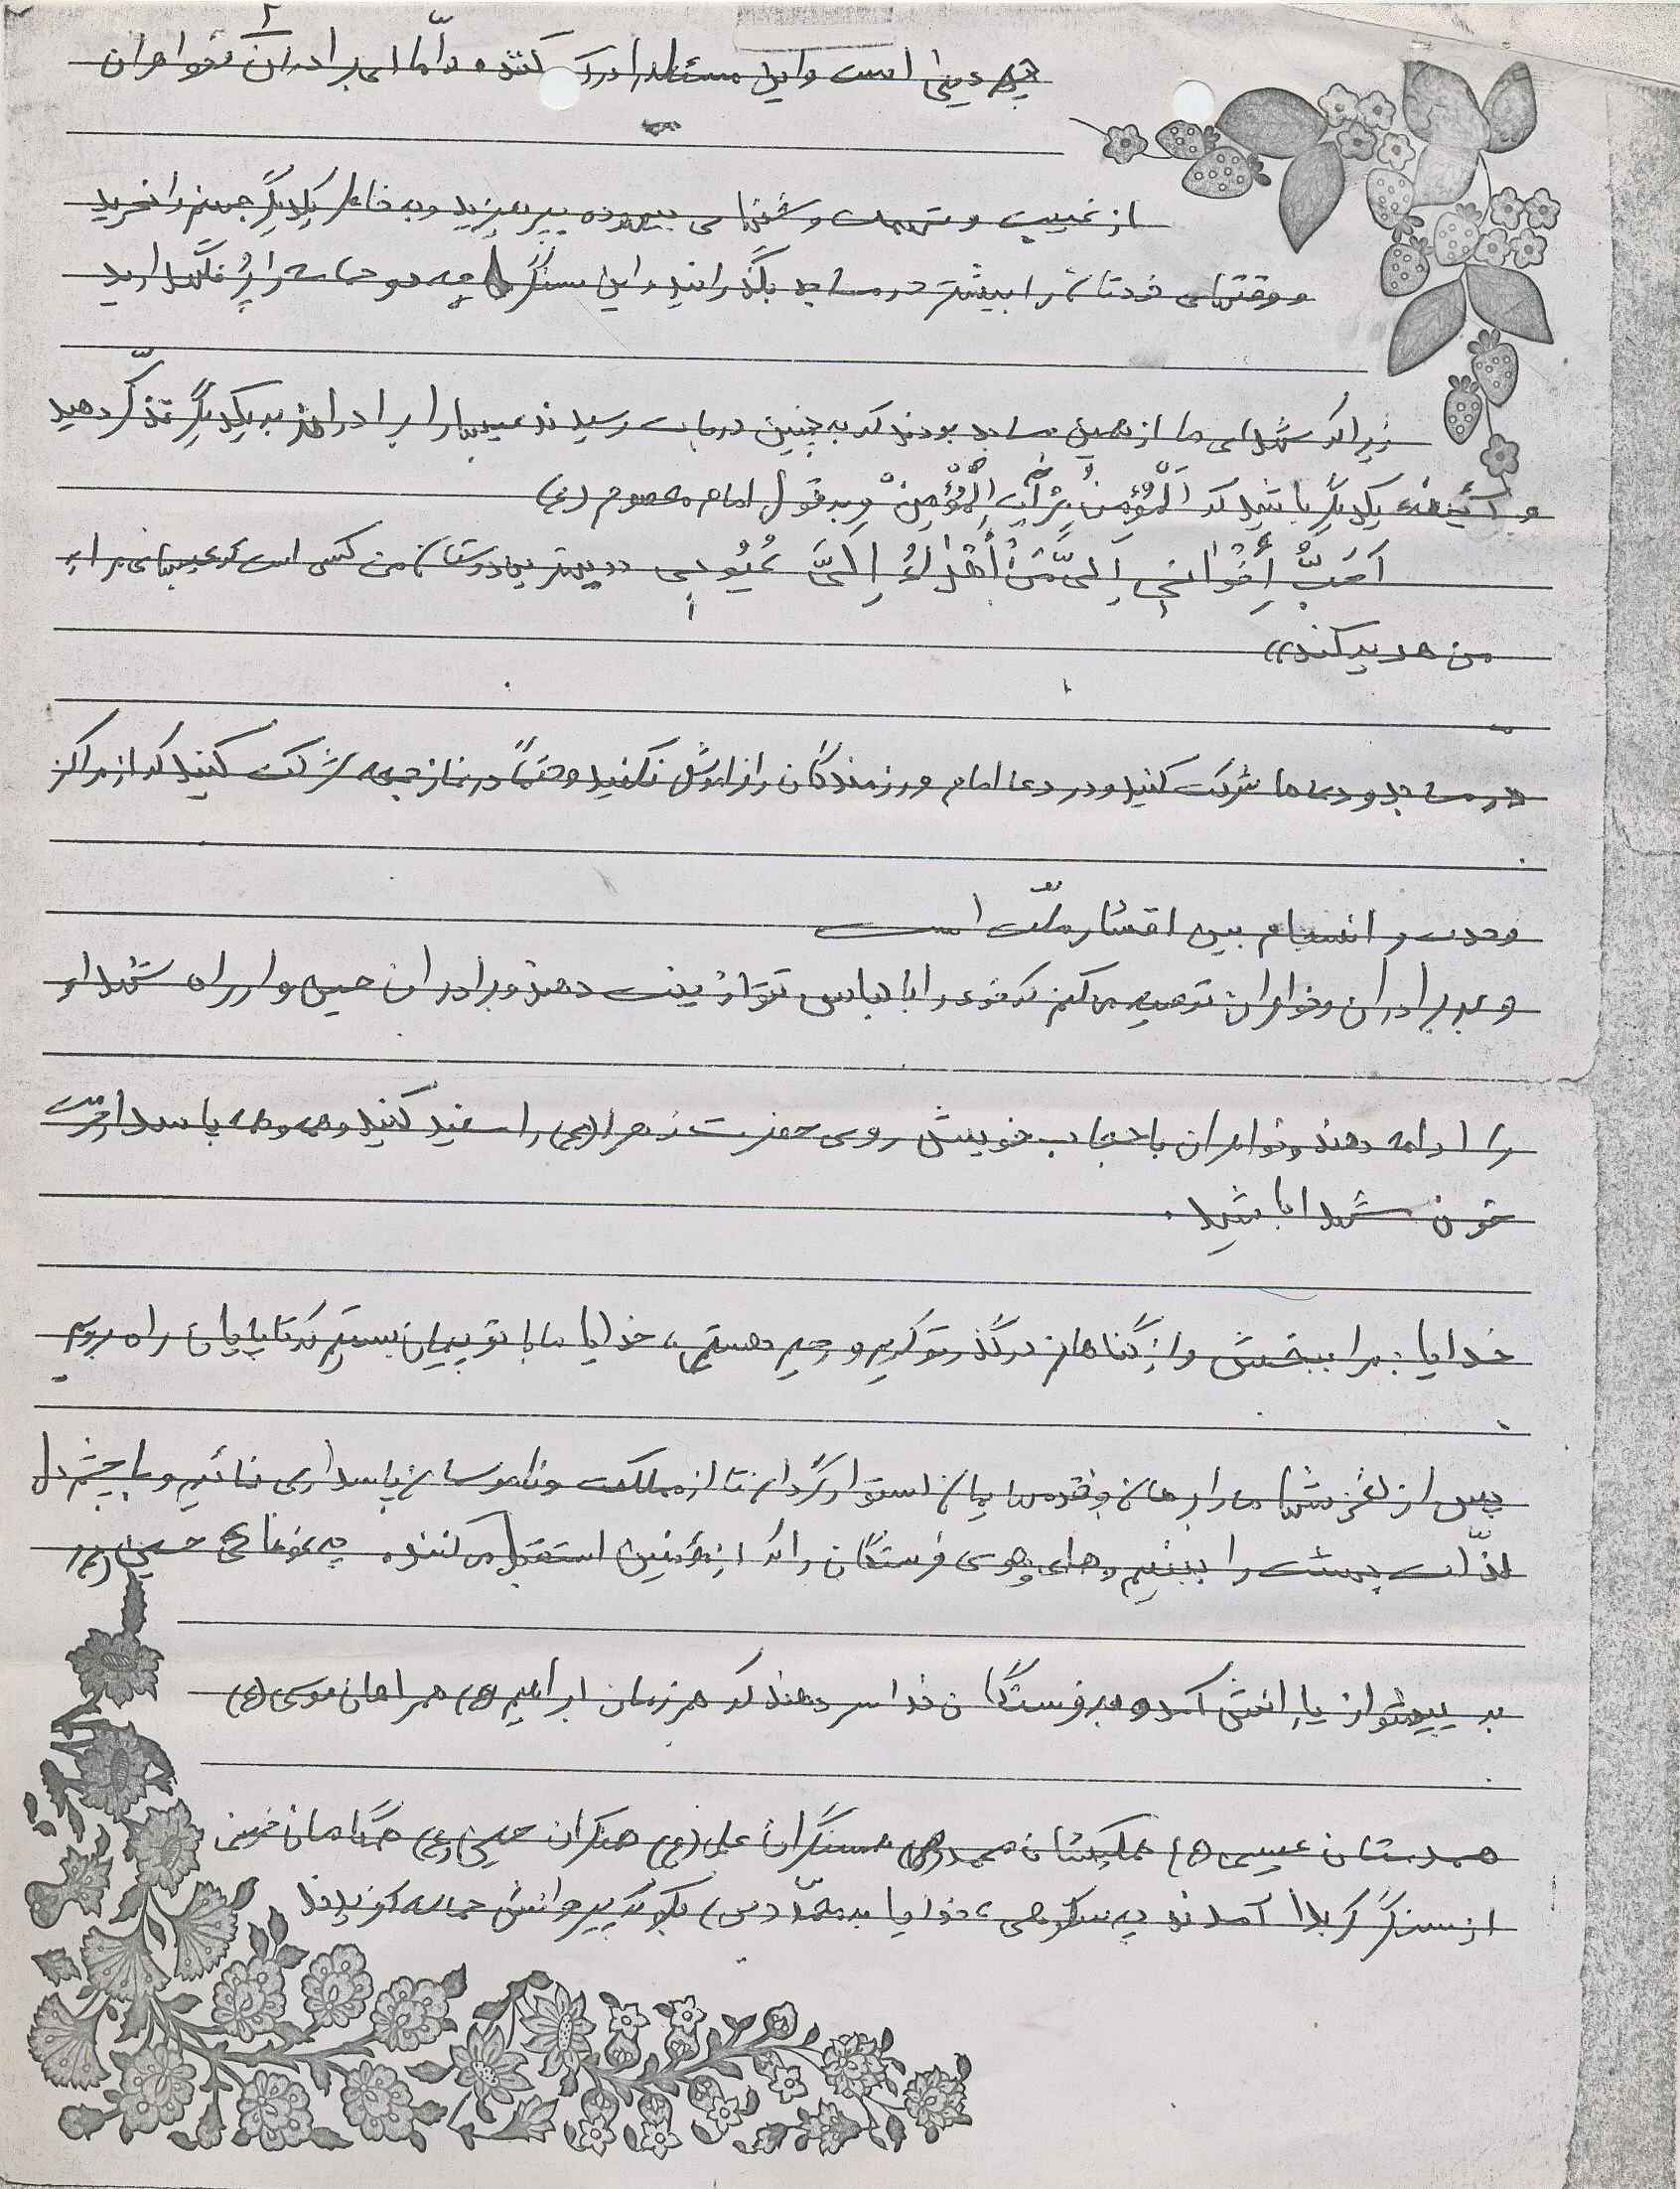 ۲
چه دینی است و این مسئله را درک کننده و امّا ای برادران و خواهران
از غیبت و تهمت و سخنهای بیهوده بپرهیزید و به خاطر یکدیگر جهنم را نخرید
و وقتهای خودتان را بیشتر در مساجد بگذرانید و این سنگر را پُر نگهدارید
زیرا که شهدای ما از همین مساجد بودند که به چنین درجات رسیدند عیبها را برادرانه به یکدیگر تذکّر دهید
و آئینهٔ یکدیگر باشید که اَلْمُؤمِنُ مِرْآتُ اَلْمُؤْمِنْ و به قول امام معصوم (ع)
اَحَبُّ اِخْوانی اِلَیَّ مَنْ اَهْداءُ اِلَیَّ عُیُوبی ((بهترین دوستان من کسی است که عیبهایم برای
من هدیه کند))
در مساجد و دعاها شرکت کنید و در دعا امام و رزمندگان را فراموش نکنید و حتماً در نماز جمعه شرکت کنید که از مراکز
وحدت و انسجام بین اقشار ملّت است
و به برادران و خواهران توصیه می کنم که خود را با لباس تقوا زینت دهند و برادران حسین وار راه شهداء
را ادامه دهند و خواهران با حجاب خویش روی حضرت زهرا (س) را سفید کنید و همه پاسدار حرمت
خون شهدا باشید.
خدایا: مرا ببخش و از گناهانم درگذر تو کریم و رحیم هستی، خدایا ما با تو پیمان بستیم که تا پایان راه برویم
پس از لغزشها ما را برهان و قدمهایمان استوار گردان تا از مملکت و ناموسمان پاسداری نمائیم و با چشم دل
لذّات بهشت را ببینیم و های و هوی فرستگان را که از مؤمنین استقبال می کنند. چه غوغائی حسین (ع)
به پیشواز یارانش آمده و فرستگان خدا سر دهند که همرزمان ابراهیم (ع) همراهان موسی (ع)
همدستان عیسی (ع) همکیشان محمد (ص) همسنگران علی (ع) همفکران حسین (ع) همگامان خمینی
از سنگر کربلا آمدند چه شکوهی، خدایا به محمّد (ص) بگو که پیروانش حماسه آفریدند